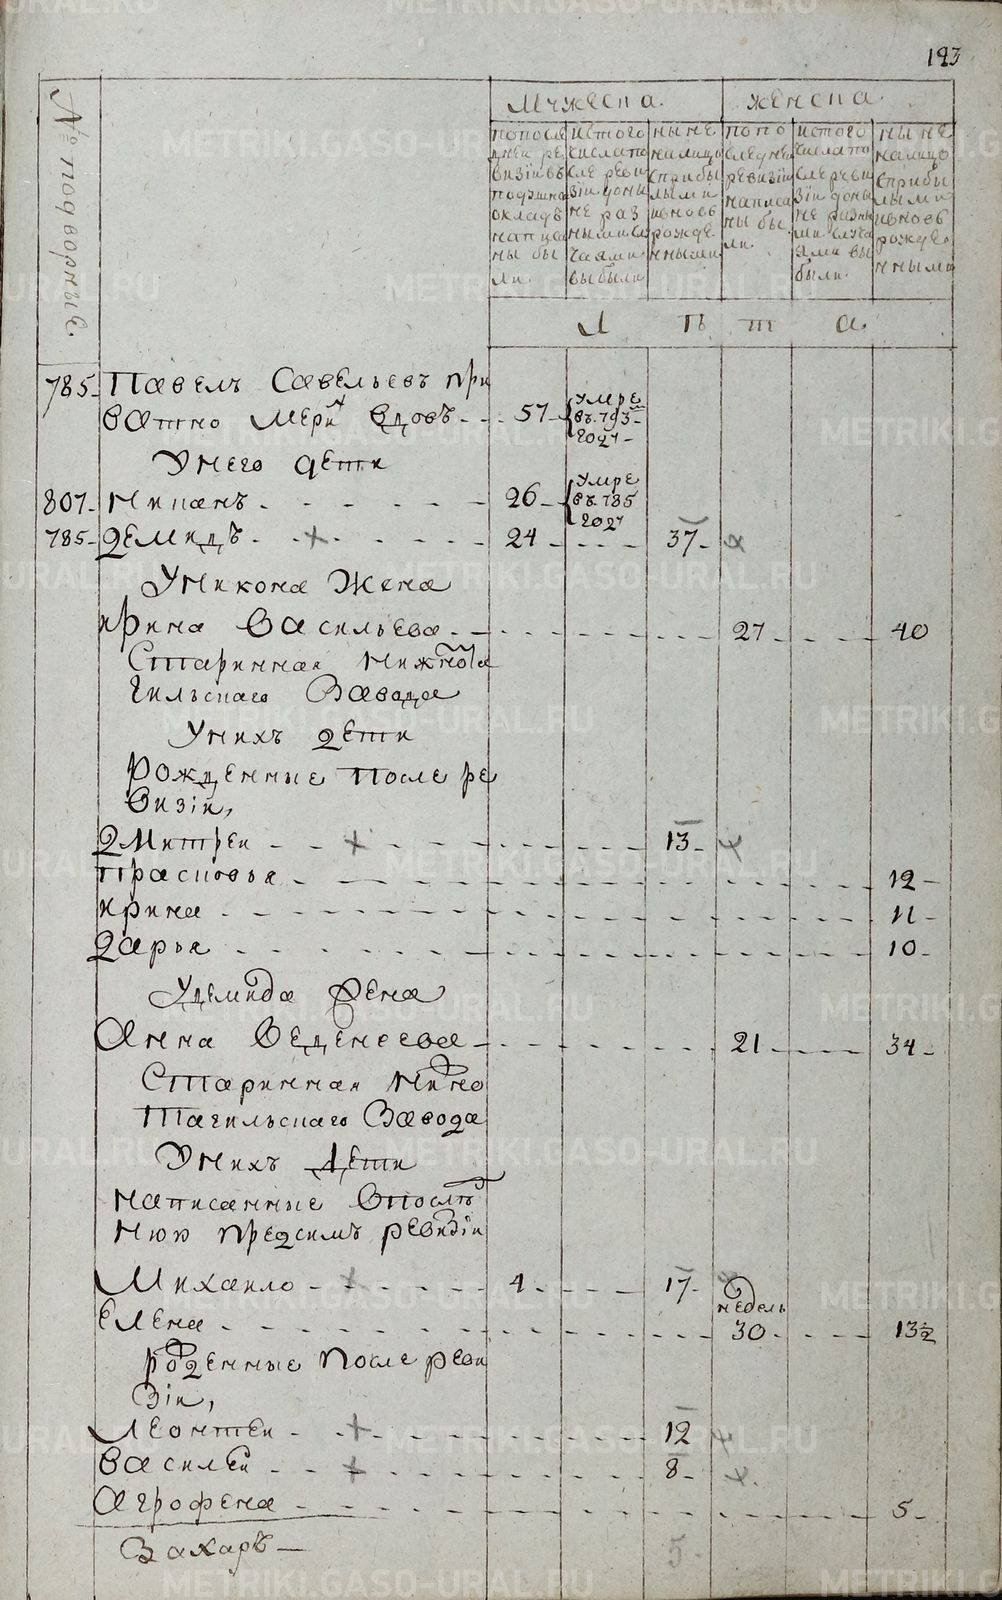 123
№ подворные.
Мужеска.
женска.
попосле
дней ре
визiи въ
подушно
окладъ
написа
ны бы
ли.
истого
числа по
сле реви
зiи доны
не раз
ными слу
чаями
выбыли
ныне
налицо
сприбы
лыми
ивновь
рожде
нными
попо
следней
ревизiи
написа
ны бы
ли.
истого
числа по
сле реви
зiи доны
не разны
ми случа
ями вы
были.
ныне
налицо
сприбы
лыми
ивновь
рожде
нными
Л ѣ т а.
785. Павелъ Савельевъ при
ватно вдовъ 57 умре въ 793 году
Унего дети
807 Никанъ 26 умре въ 785 году
785 Демидъ 24 37
Уникона Жена
Ирина Васильева 27 40
Старинная Нижнота
гильскаго Завода
Унихъ дети
Рожденные после ре
визiи,
Дмитреи 13
Прасковья 12
Ирина 11
Дарья 10
Удемида Жена
Анна Веденеева 21 34
Старинная Нижно
Тагильскаго Завода
Унихъ Дети
написанные впослѣд
нюю предсимъ ревизiи
Михаило 1 17
недель
Елена 30 13½
рожденные после реви
зiи,
Леонтеи 12
Василеи 8
Агрофена 5
Захаръ 5